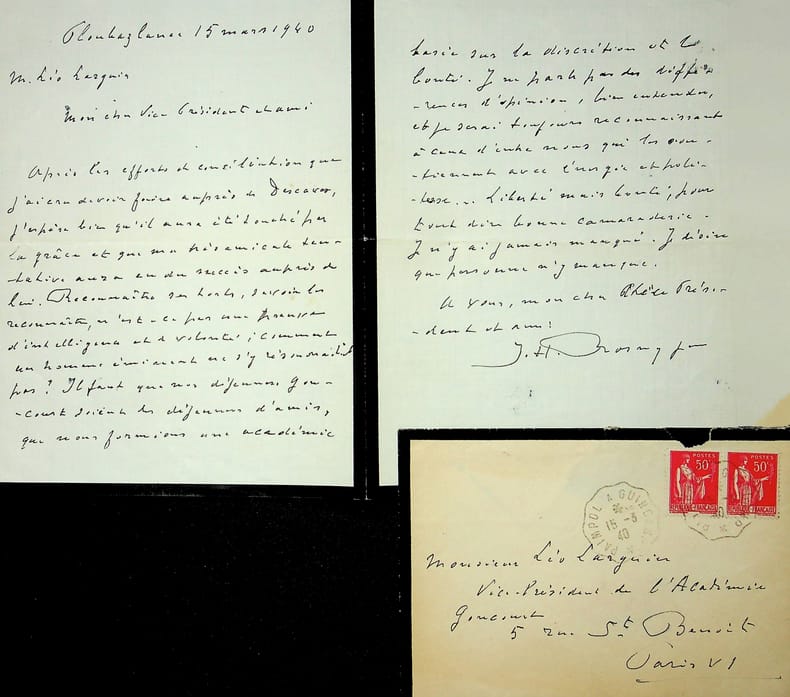 Ploubazlanec 15 mars 1940
M. Léo Larguier
Mon cher Vice Président et ami
Après les efforts de conciliation que
j'ai cru devoir faire auprès de Descaves,
j'espère bien qu'il aura été touché par
la grâce et que ma très amicale ten-
-tative aura eu du succès auprès de
lui. Reconnaître ses torts, savoir les
reconnaître, n'est-ce pas une preuve
d'intelligence et de volonté ; comment
un homme éminent ne s'y résoudrait
pas ? Il faut que nos déjeuners Gon-
-court soient des déjeuners d'amis,
que nous formions une académie
basée sur la discrétion et la
bonté. Je ne parle pas des diffé-
-rences d'opinion, bien entendu,
et je serai toujours reconnaissant
à ceux d'entre nous qui les sou-
-tiennent avec énergie et poli-
-tesse... Liberté mais bonté, pour
tout dire bonne camaraderie.
Je n'y ai jamais manqué. Je désire
que personne n'y manque.
A vous, mon cher Prési-
-dent et ami !
J.-H. Rosny jne
POSTES
50c
REPUBLIQUE FRANÇAISE
POSTES
50c
REPUBLIQUE FRANÇAISE
PAIMPOL A GUINGAMP
15-3
40
Monsieur Léo Larguier
Vice-Président de l'Académie
Goncourt
5 rue St Benoit
Paris VI